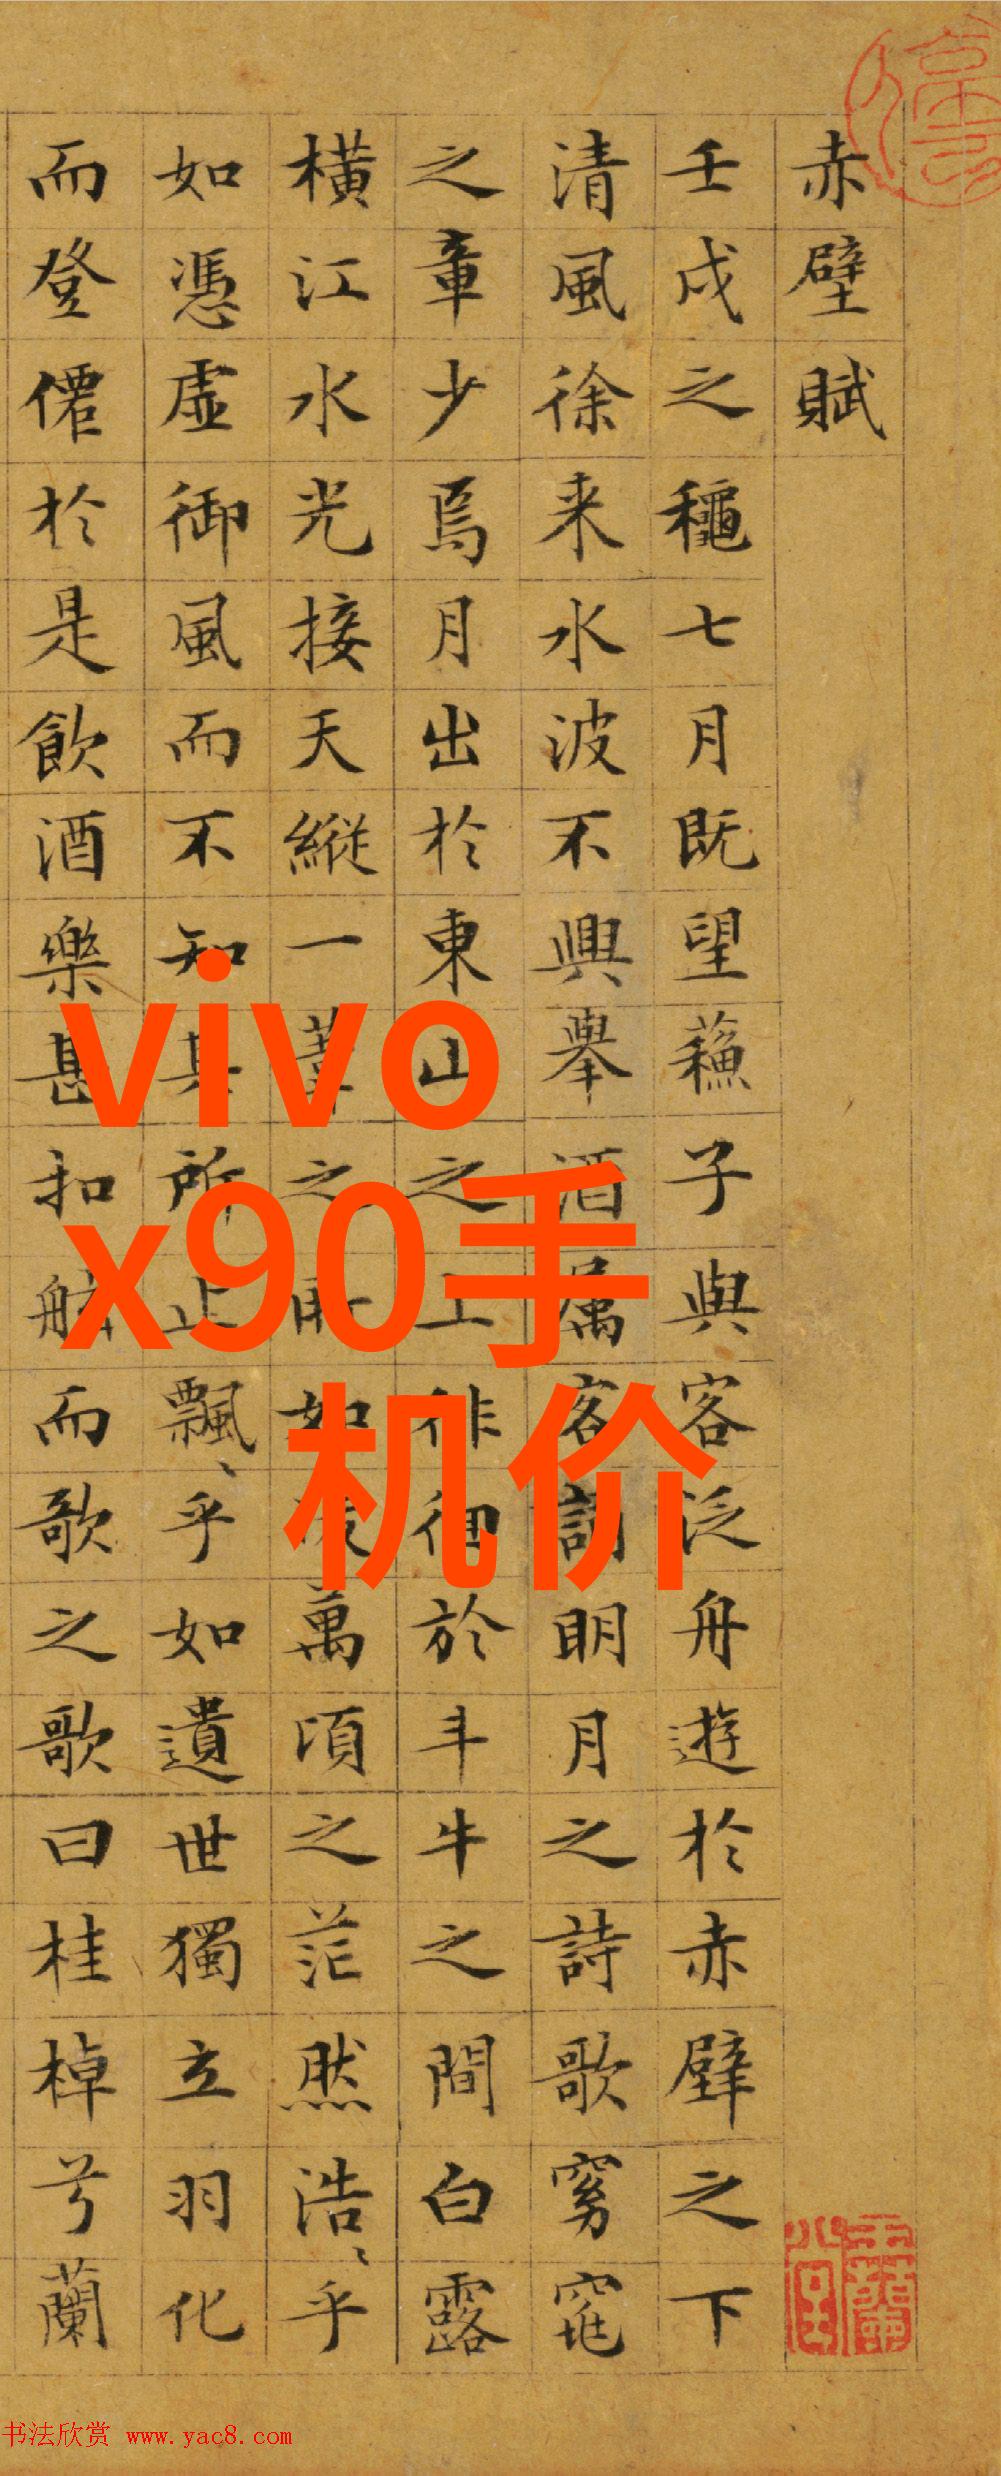 赤壁賦
壬戌之龝七月既望蘓子與客泛舟遊於赤壁之下
清風徐来水波不興舉酒属客誦明月之詩歌窈窕
之章少焉月出於東山之上徘徊於斗牛之間白露
橫江水光接天縱一葦之所如凌萬頃之茫然浩〻乎
如憑虛御風而不知其所止飄〻乎如遺世獨立羽化
而登僊於是飲酒樂甚扣舷而歌之歌曰桂棹兮蘭
vivo
x90手
机价
书法欣赏 www.yac8.com